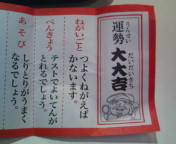 うんせい
運勢
だいだいきち
大大吉
ねがいごと
つよくねがえば
かないます。
べんきょう
テストでよいてんが
とれるでしょう。
あそび
しりとりがうまく
なるでしょう。